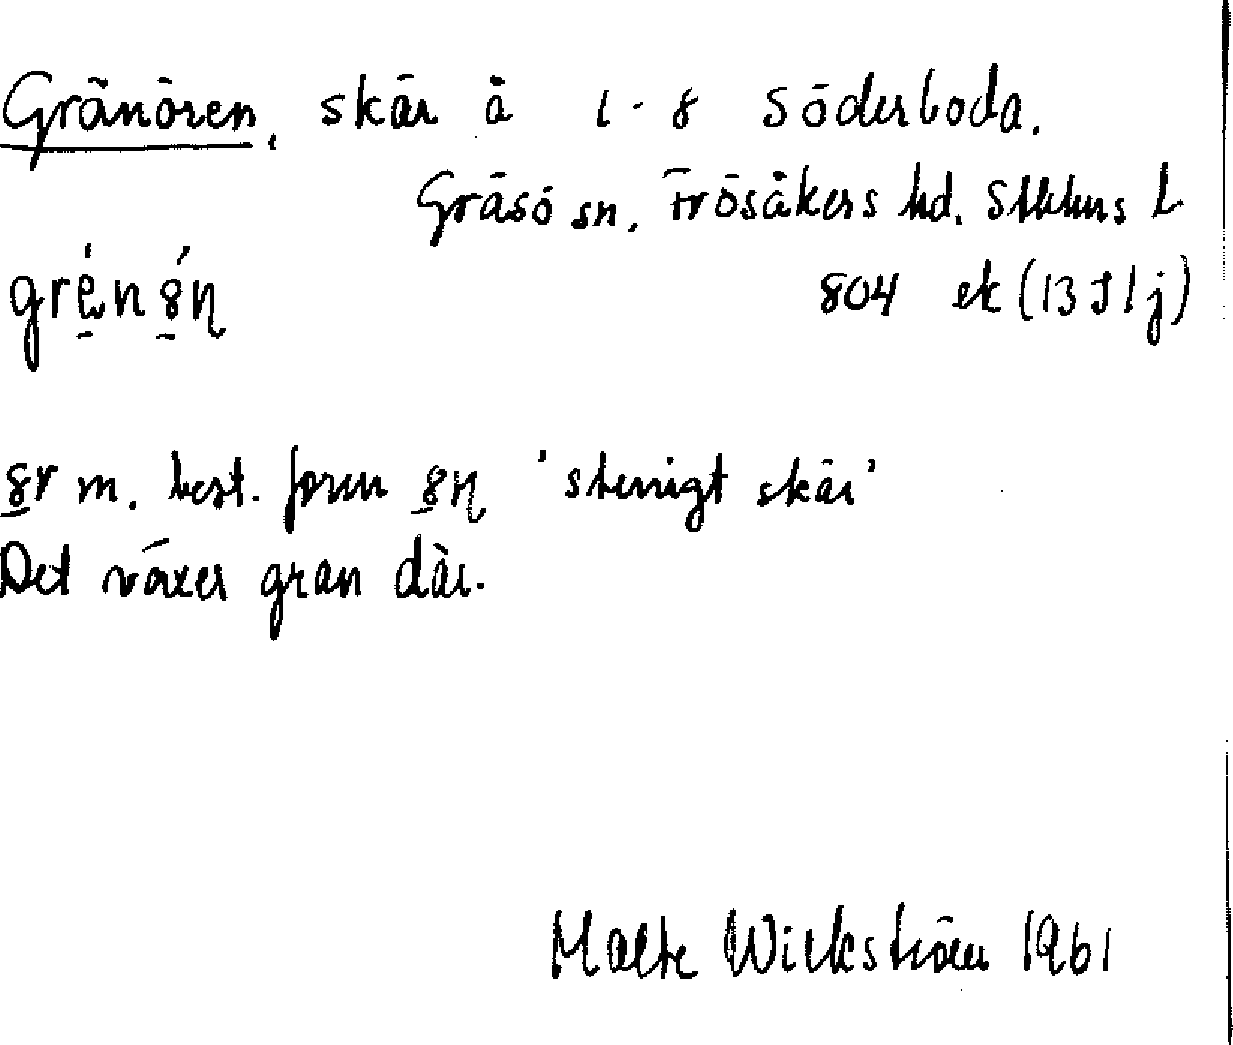 Gränören, skär å 1-8 Söderboda.
Gräsö sn, Frösåkers hd. Sthlms L
804 ek (13 I 1 j)
m. best. form 'stenigt skär'
Det växer gran där.
Malte Wickström 1961